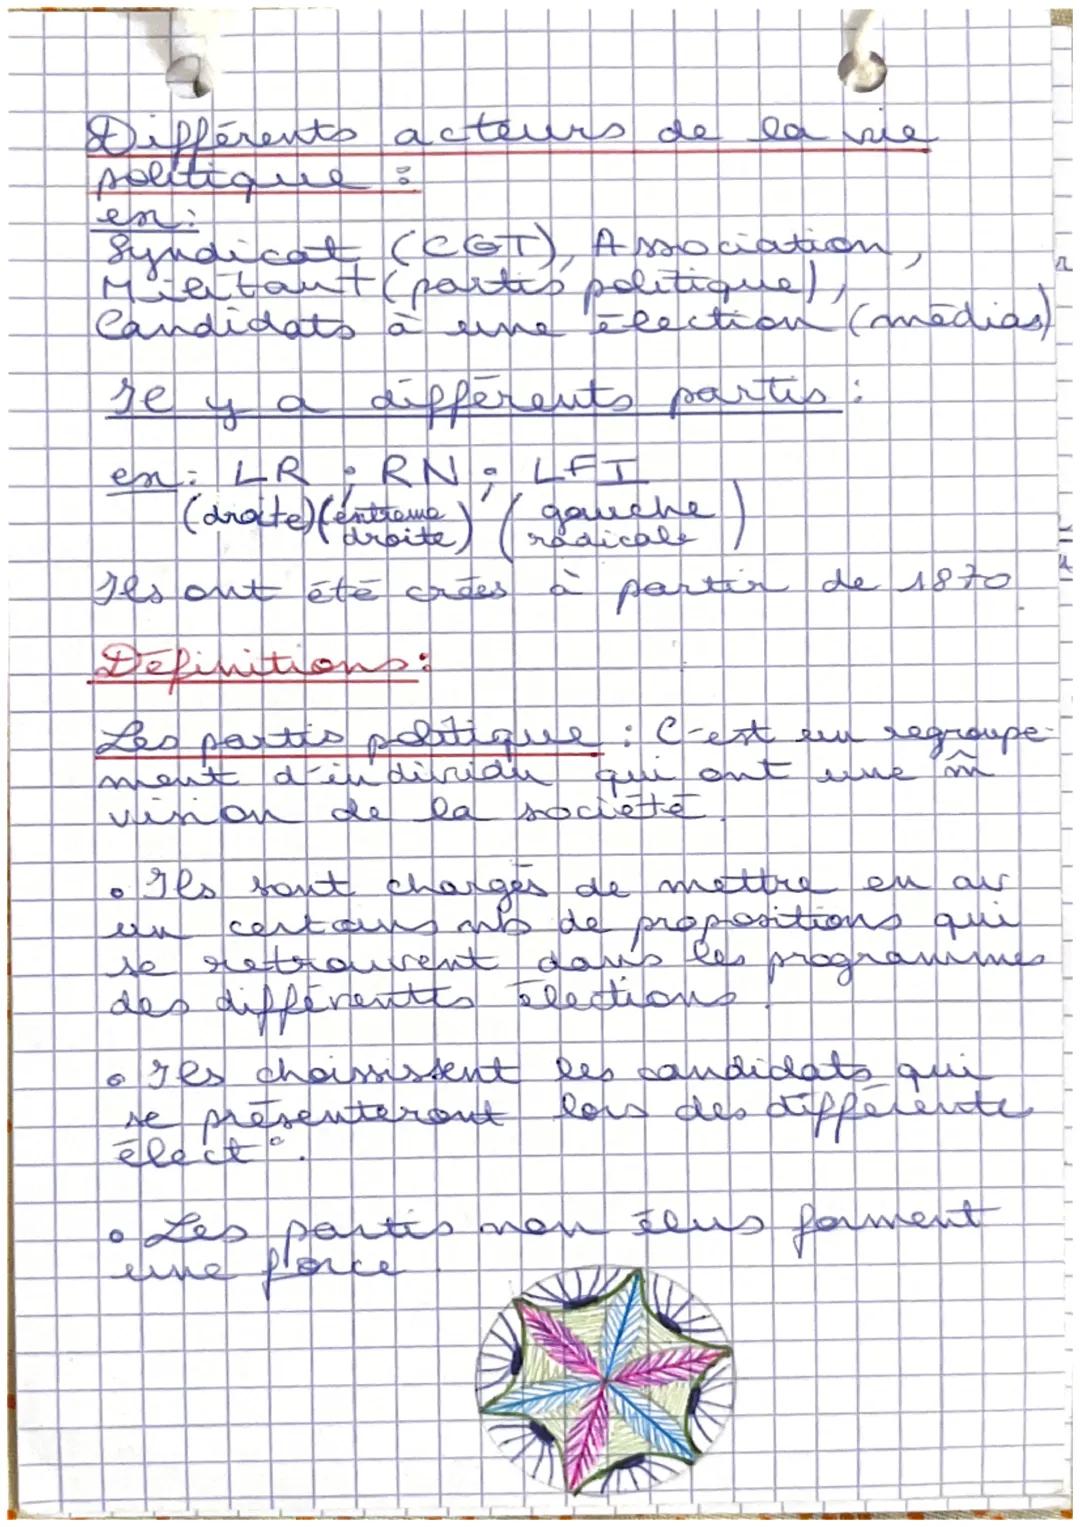 Différents acteurs de la vie
politique :
ex:
Syndicat (CGT), Association,
Militant (partis politique),
Candidats à une élection (médias)
Il y a différents partis :
ex: LR ; RN ; LFI
(droite) (extreme droite) (gauche radicale)
Ils ont été crées à partir de 1870.
Définitions:
Les partis politique : C'est un regroupe-
ment d'individu qui ont une m̂
vision de la société.
• Ils sont chargés de mettre en av
un certains nb de propositions qui
se retrouvent dans les programmes
des différents élections.
• Ils choisissent les candidats qui
se présenteront lors des différente
élect°.
• Les partis non élus forment
une force.